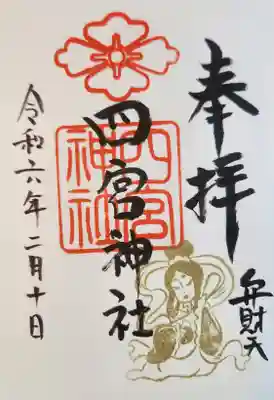 奉拝
弁財天
四宮神社
四宮神社
令和六年二月十日